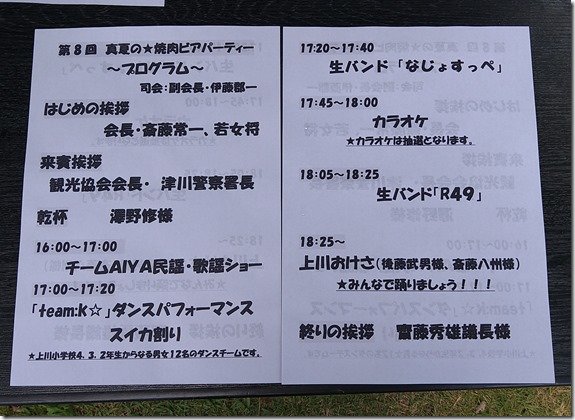 第8回 真夏の★焼肉ビアパーティー
～プログラム～
司会:副会長・伊藤郡一
はじめの挨拶
会長・斎藤常一、若女将
来賓挨拶
観光協会会長・ 津川警察署長
乾杯 澤野修様
16:00～17:00
チームAIYA民謡・歌謡ショー
17:00～17:20
「team:k☆」ダンスパフォーマンス
スイカ割り
★上川小学校4、3、2年生からなる男女12名のダンスチームです。
17:20～17:40
生バンド 「なじょすっぺ」
17:45～18:00
カラオケ
★カラオケは抽選となります。
18:05～18:25
生バンド「R49」
18:25～
上川おけさ(後藤武男様、斎藤八州様)
★みんなで踊りましょう!!!
終りの挨拶 齋藤秀雄議長様